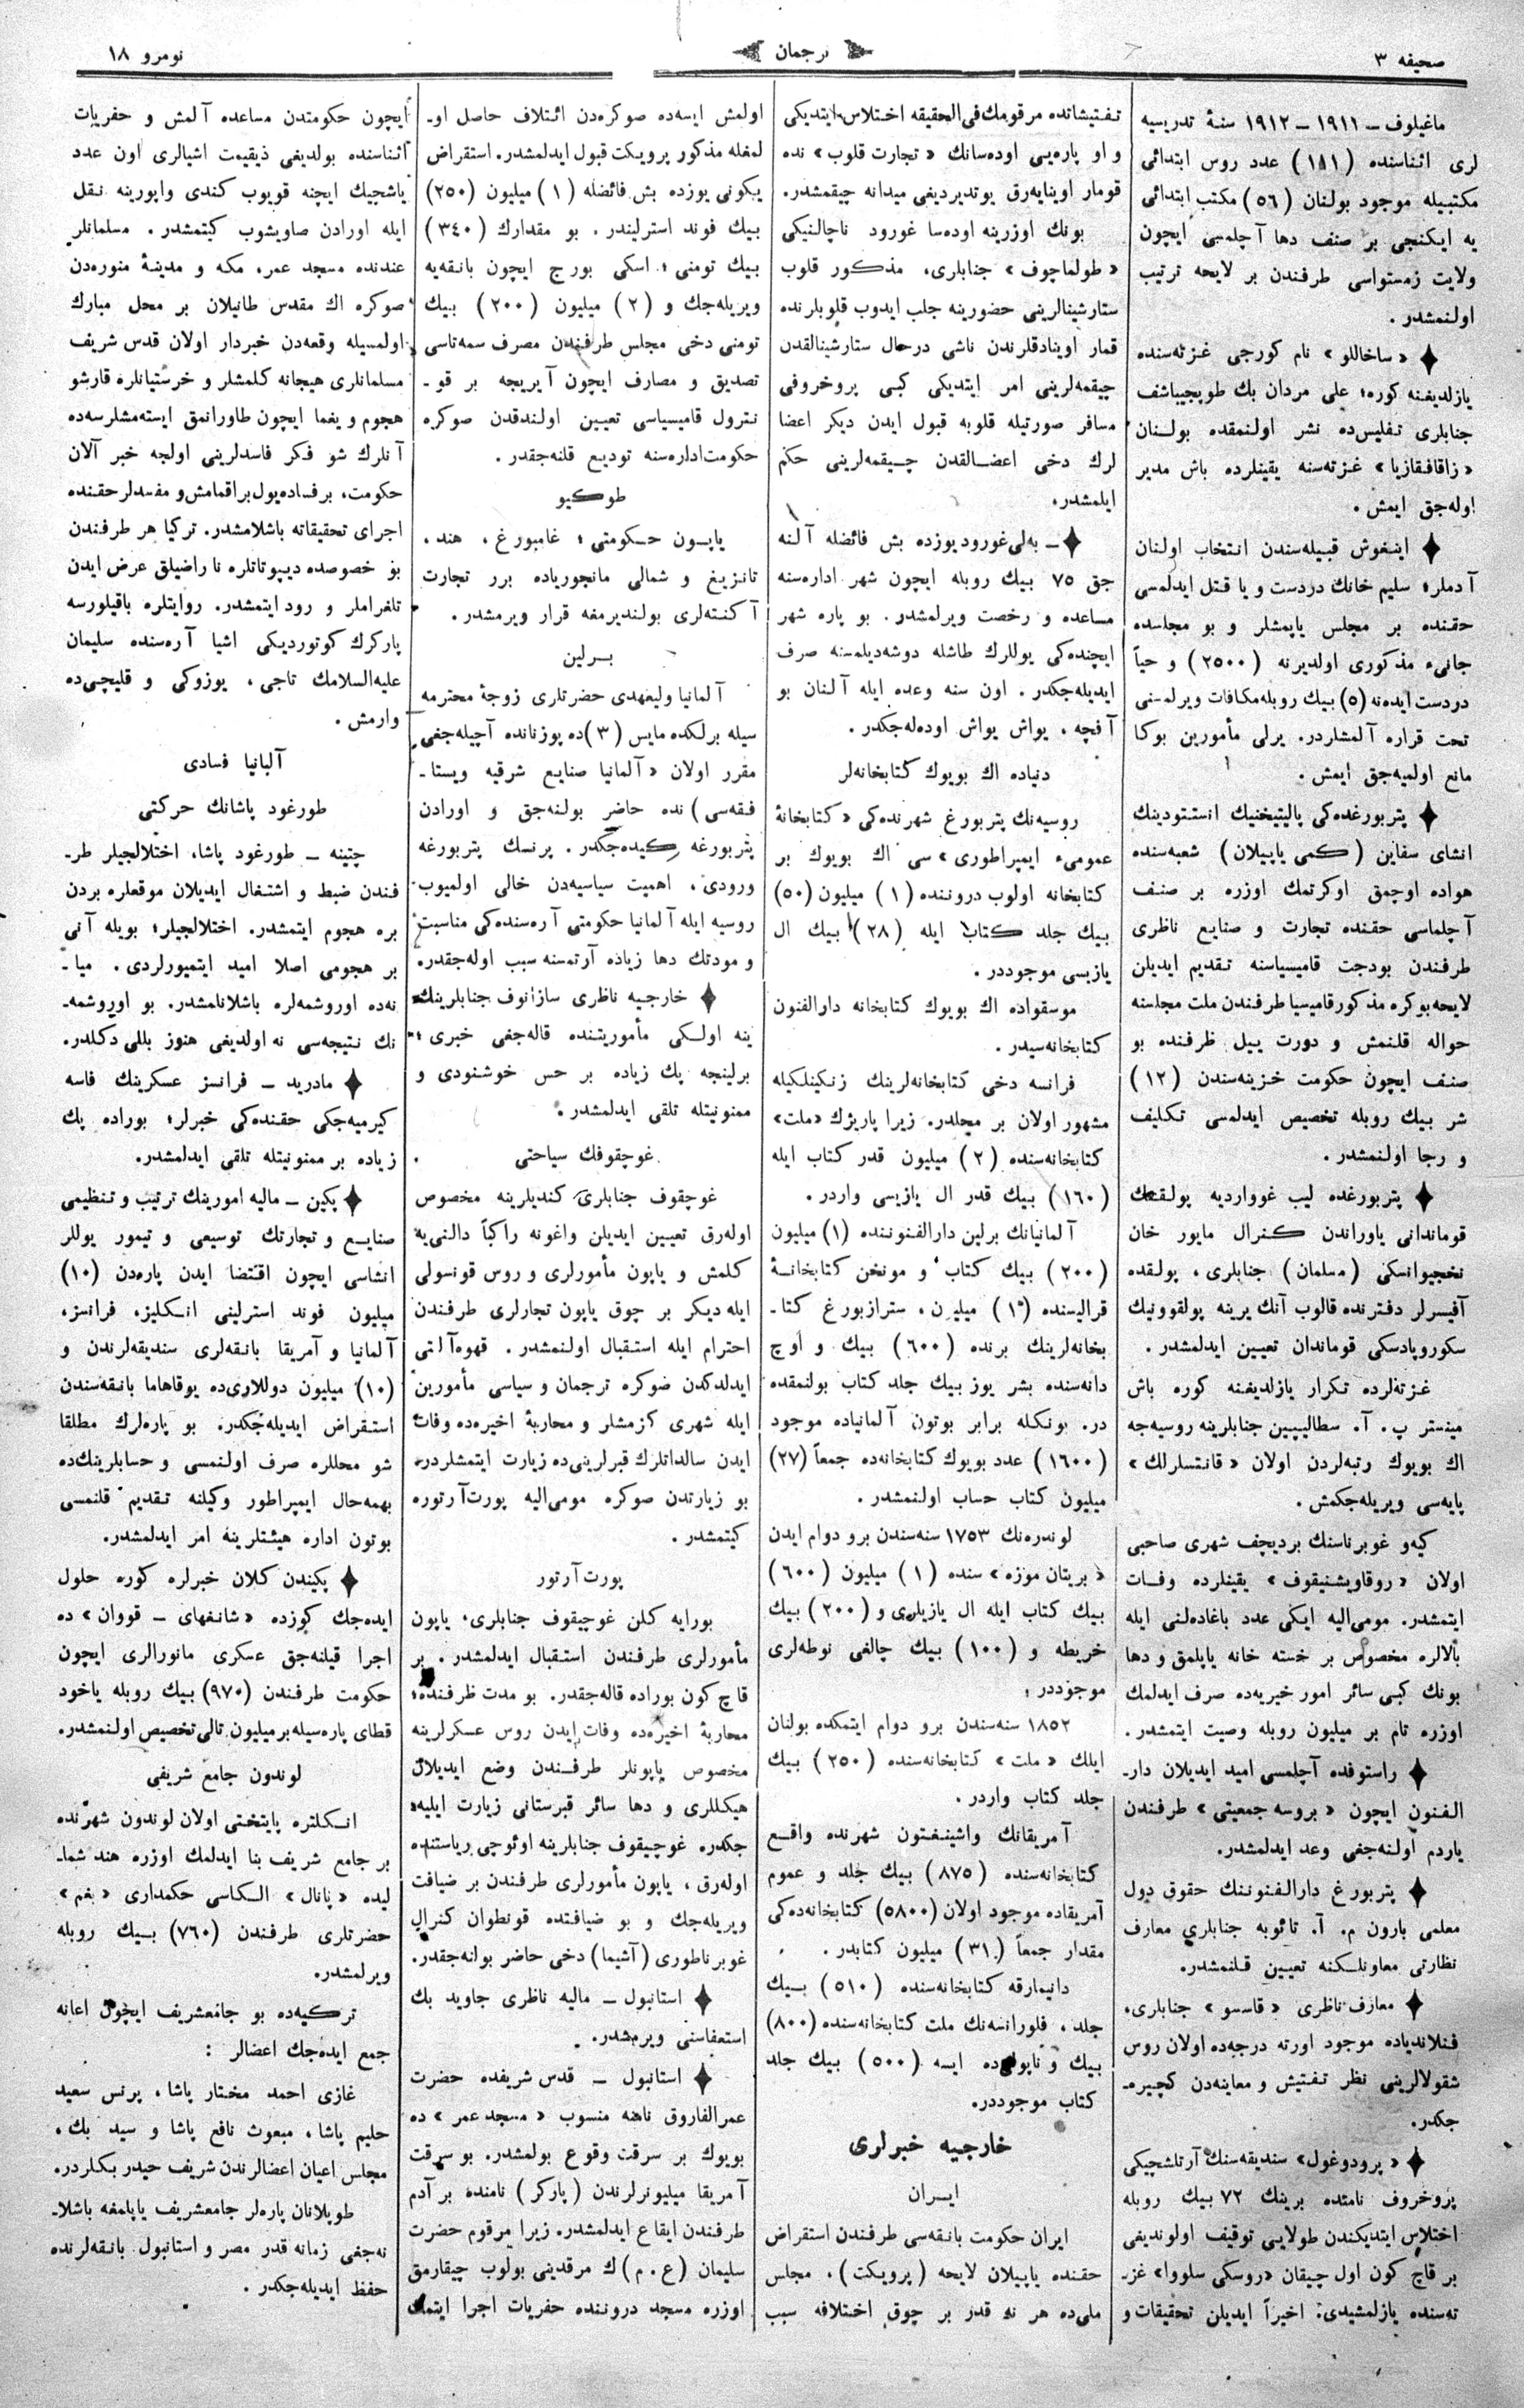 صحیفه ۳
ترجمان
نومرو ۱۸
ماغیلوف – ۱۹۱۱ – ۱۹۱۲ سنهٔ تدریسیه
لری اثناسنده (۱۸۱) عدد روس ابتدائی
مكتبیله موجود بولنان (۵٦) مكتب ابتدائی
یه ایكنجی بر صنف دها آچلمسی ایچون
ولایت زمستواسی طرفندن بر لایحه ترتیب
اولنمشدر .
« ساخاللو » نام كورجی غزته‌سنده
یازلدیغنه كوره؛ علی مردان بك طوپچیباشف
جنابلری تفلیس‌ده نشر اولنمقده بولنان
« زاقافقازیا » غزته‌سنه یقینلرده باش مدیر
اوله‌جق ایمش .
اینغوش قبیله‌سندن انتخاب اولنان
آدملر؛ سلیم خانك دردست و یا قتل ایدلمسی
حقنده بر مجلس یاپمشلر و بو مجلسده
جانیء مذكوری اولدیرنه (۲۵۰۰) و حیاً
دردست ایده‌نه (۵) بیك روبله مكافات ویرلمسنی
تحت قراره آلمشلردر. یرلی مأمورین بوكا
مانع اولمیه‌جق ایمش .
پتربورغده‌كی پالیتیخنیك انستتودینك
انشای سفاین (كمی یاپیلان) شعبه‌سنده
هواده اوچمق اوكرتمك اوزره بر صنف
آچلماسی حقنده تجارت و صنایع ناظری
طرفندن بودجت قامیسیاسنه تقدیم ایدیلن
لایحه بوكره مذكور قامیسیا طرفندن ملت مجلسنه
حواله قلنمش و دورت ییل ظرفنده بو
صنف ایچون حكومت خزینه‌سندن (۱۲)
شر بیك روبله تخصیص ایدلمسی تكلیف
و رجا اولنمشدر .
پتربورغده لیب غوواردیه پولقنك
قوماندانی یاوراندن كنرال مایور خان
نخجیوانسكی (مسلمان) جنابلری ، پولقده
آفیسرلر دفترنده قالوب آنك یرینه پولقوونیك
سكوروپادسكی قوماندان تعیین ایدلمشدر .
غزته‌لرده تكرار یازلدیغنه كوره باش
مینستر پ. آ. سطالیپین جنابلرینه روسیه‌جه
اك بویوك رتبه‌لردن اولان « قانتسلرلك »
پایه‌سی ویریله‌جكمش .
كیه‌و غوبرناسنك بردیچف شهری صاحبی
اولان « روقاویشنیقوف » یقینلرده وفات
ایتمشدر. مومی‌الیه ایكی عدد باغاده‌لنی ایله
بالالره مخصوص بر خسته خانه یاپلمق و دها
بونك كبی سائر امور خیریه‌ده صرف ایدلمك
اوزره تام بر میلیون روبله وصیت ایتمشدر .
راستوفده آچلمسی امید ایدیلان دار-
الفنون ایچون « بروسه جمعیتی » طرفندن
یاردم اولنه‌جغی وعد ایدلمشدر.
پتربورغ دارالفنوننك حقوق دول
معلمی بارون م. آ. تائوبه جنابلری معارف
نظارتی معاونلكنه تعیین قلنمشدر.
معارف ناظری « قاسسو » جنابلری،
فنلاندیاده موجود اورته درجه‌ده اولان روس
شقولالرینی نظر تفتیش و معاینه‌دن كچیره-
جكدر.
« پرودوغول » سندیقه‌سنك آرتلشچیكی
پروخروف نامنده برینك ۷۲ بیك روبله
اختلاس ایتدیكندن طولایی توقیف اولوندیغی
بر قاچ كون اول چیقان «روسكی سلووا» غز-
ته‌سنده یازلمشیدی: اخیراً ایدیلن تحقیقات و
تفتیشاتده مرقومك فی‌الحقیقه اختلاس ایتدیكی
و او پاره‌یی اوده‌سانك « تجارت قلوب » نده
قومار اوینایه‌رق یوتدیردیغی میدانه چیقمشدر.
بونك اوزرینه اوده‌سا غورود ناچالنیكی
« طولماچوف » جنابلری، مذكور قلوب
ستارشینالرینی حضورینه جلب ایدوب قلوبلرنده
قمار اوینادقلرندن ناشی درحال ستارشینالقدن
چیقمه‌لرینی امر ایتدیكی كبی پروخروفی
مسافر صورتیله قلوبه قبول ایدن دیكر اعضا
لرك دخی اعضالقدن چیقمه‌لرینی حكم
ایلمشدر.
– به‌لی‌غورود یوزده بش فائضله آلنه
جق ۷۵ بیك روبله ایچون شهر اداره‌سنه
مساعده و رخصت ویرلمشدر. بو پاره شهر
ایچنده‌كی یوللرك طاشله دوشه‌دیلمسنه صرف
ایدیله‌جكدر . اون سنه وعده ایله آلنان بو
آقچه ، یواش یواش اوده‌له‌جكدر.
دنیاده اك بویوك كتابخانه‌لر
روسیه‌نك پتربورغ شهرنده‌كی « كتابخانهٔ
عمومیء ایمپراطوری » سی اك بویوك بر
كتابخانه اولوب دروننده (۱) میلیون (۵۰)
بیك جلد كتابلا ایله (۲۸) بیك ال
یازیسی موجوددر .
موسقواده اك بویوك كتابخانه دارالفنون
كتابخانه‌سیدر .
فرانسه دخی كتابخانه‌لرینك زنكینلكیله
مشهور اولان بر محلدر. زیرا پاریژك «ملت»
كتابخانه‌سنده (۲) میلیون قدر كتاب ایله
(۱٦۰) بیك قدر ال یازیسی واردر .
آلمانیانك برلین دارالفنوننده (۱) میلیون
(۲۰۰) بیك كتاب و مونخن كتابخانهٔ
قرالیسنده (۱) میلیون، سترازبورغ كتا-
بخانه‌لرینك برنده (٦۰۰) بیك و اوچ
دانه‌سنده بشر یوز بیك جلد كتاب بولنمقده
در. بونكله برابر بوتون آلمانیاده موجود
(۱٦۰۰) عدد بویوك كتابخانه‌ده جمعاً (۲۷)
میلیون كتاب حساب اولنمشدر .
لوندره‌نك ۱۷۵۳ سنه‌سندن برو دوام ایدن
« بریتان موزه » سنده (۱) میلیون (٦۰۰)
بیك كتاب ایله ال یازیلری و (۲۰۰) بیك
خریطه و (۱۰۰) بیك چالغی نوطه‌لری
موجوددر ،
۱۸۵۲ سنه‌سندن برو دوام ایتمكده بولنان
ایلك « ملت » كتابخانه‌سنده (۲۵۰) بیك
جلد كتاب واردر .
آمریقانك واشینغتون شهرنده واقع
كتابخانه‌سنده (۸۷۵) بیك جلد و عموم
آمریقاده موجود اولان (۵۸۰۰) كتابخانه‌ده‌كی
مقدار جمعاً (۳۱) میلیون كتابدر .
دانیمارقه كتابخانه‌سنده (۵۱۰) بیك
جلد ، فلورانسه‌نك ملت كتابخانه‌سنده (۸۰۰)
بیك و ناپولی‌ده ایسه (۵۰۰) بیك جلد
كتاب موجوددر.
خارجیه خبرلری
ایران
ایران حكومت بانقه‌سی طرفندن استقراض
حقنده یاپیلان لایحه (پرویكت) ، مجلس
ملی‌ده هر نه قدر بر چوق اختلافه سبب
اولمش ایسه‌ده صوكره‌دن ائتلاف حاصل او-
لمغله مذكور پرویكت قبول ایدلمشدر. استقراض
یكونی یوزده بش فائضله (۱) میلیون (۲۵۰)
بیك فوند استرلیندر . بو مقدارك (۳٤۰)
بیك تومنی ؛ اسكی بورج ایچون بانقه‌یه
ویریله‌جك و (۲) میلیون (۲۰۰) بیك
تومنی دخی مجلس طرفندن مصرف سمه‌تاسی
تصدیق و مصارف ایچون آیریجه بر قو-
نترول قامیسیاسی تعیین اولندقدن صوكره
حكومت اداره‌سنه تودیع قلنه‌جقدر .
طوكیو
یاپون حكومتی ؛ غامبورغ ، هند ،
تانزیغ و شمالی مانچوریاده برر تجارت
آكنته‌لری بولندیرمغه قرار ویرمشدر .
برلین
آلمانیا ولیعهدی حضرتلری زوجهٔ محترمه
سیله برلكده مایس (۳) ده پوزنانده آچیله‌جغی
مقرر اولان « آلمانیا صنایع شرقیه ویستا-
فقه‌سی) نده حاضر بولنه‌جق و اورادن
پتربورغه كیده‌جكدر . پرنسك پتربورغه
ورودی ، اهمیت سیاسیه‌دن خالی اولمیوب
روسیه ایله آلمانیا حكومتی آره‌سنده‌كی مناسبت
و مودتك دها زیاده آرتمسنه سبب اوله‌جقدر.
خارجیه ناظری سازانوف جنابلرینك
ینه اولكی مأموریتنده قاله‌جغی خبری ؛
برلینجه پك زیاده بر حس خوشنودی و
ممنونیتله تلقی ایدلمشدر .
غوچقوفك سیاحتی
غوچقوف جنابلری كندیلرینه مخصوص
اوله‌رق تعیین ایدیلن واغونه راكباً دالنی‌یه
كلمش و یاپون مأمورلری و روس قونسولی
ایله دیكر بر چوق یاپون تجارلری طرفندن
احترام ایله استقبال اولنمشدر . قهوه‌آلتی
ایدلدكدن صوكره ترجمان و سیاسی مأمورین
ایله شهری كزمشلر و محاربهٔ اخیره‌ده وفات
ایدن سالداتلرك قبرلرینی‌ده زیارت ایتمشلردر.
بو زیارتدن صوكره مومی‌الیه پورت‌آرتوره
كیتمشدر .
پورت آرتور
بورایه كلن غوچیقوف جنابلری، یاپون
مأمورلری طرفندن استقبال ایدلمشدر . بر
قاچ كون بوراده قاله‌جقدر. بو مدت ظرفنده؛
محاربهٔ اخیره‌ده وفات ایدن روس عسكرلرینه
مخصوص یاپونلر طرفندن وضع ایدیلان
هیكللری و دها سائر قبرستانی زیارت ایلیه-
جكدر. غوچیقوف جنابلرینه اوئوچی ریاستنده
اوله‌رق ، یاپون مأمورلری طرفندن بر ضیافت
ویریله‌جك و بو ضیافتده قونطوان كنرال
غوبرناطوری (آشیما) دخی حاضر بولنه‌جقدر.
استانبول – مالیه ناظری جاوید بك
استعفاسنی ویرمشدر.
استانبول – قدس شریفده حضرت
عمرالفاروق نامنه منسوب « مسجد عمر » ده
بویوك بر سرقت وقوع بولمشدر. بو سرقت
آمریقا میلیونرلرندن (پاركر) نامنده بر آدم
طرفندن ایقاع ایدلمشدر. زیرا مرقوم حضرت
سلیمان (ع.م) ك مرقدینی بولوب چیقارمق
اوزره مسجد دروننده حفریات اجرا ایتمك
ایچون حكومتدن مساعده آلمش و حفریات
اثناسنده بولدیغی ذیقیمت اشیالری اون عدد
یاشچیك ایچنه قویوب كندی واپورینه نقل
ایله اورادن صاویشوب كیتمشدر . مسلمانلر
عندنده مسجد عمر، مكه و مدینهٔ منوره‌دن
صوكره اك مقدس طانیلان بر محل مبارك
اولمسیله وقعه‌دن خبردار اولان قدس شریف
مسلمانلری هیجانه كلمشلر و خرستیانلره قارشو
هجوم و یغما ایچون طاورانمق ایسته‌مشلرسه‌ده
آنلرك شو فكر فاسدلرینی اولجه خبر آلان
حكومت، بر فساده یول براقمامش و مفسدلر حقنده
اجرای تحقیقاته باشلامشدر. تركیا هر طرفندن
بو خصوصده دیپوتاتلره ناراضیلق عرض ایدن
تلغراملر و رود ایتمشدر. روایتلره باقیلورسه
پاركرك كوتوردیكی اشیا آره‌سنده سلیمان
علیه‌السلامك تاجی ، یوزوكی و قلیچی‌ده
وارمش .
آلبانیا فسادی
طورغود پاشانك حركتی
چتینه – طورغود پاشا، اختلالجیلر طر-
فندن ضبط و اشتغال ایدیلان موقعلره بردن
بره هجوم ایتمشدر. اختلالجیلر؛ بویله آنی
بر هجومی اصلا امید ایتمیورلردی. میا-
نه‌ده اوروشمه‌لره باشلانلمشدر. بو اوروشمه-
نك نتیجه‌سی نه اولدیغی هنوز بللی دكلدر.
مادرید – فرانسز عسكرینك فاسه
كیرمیه‌جكی حقنده‌كی خبرلر؛ بوراده پك
زیاده بر ممنونیتله تلقی ایدلمشدر.
پكین – مالیه امورینك ترتیب و تنظیمی
صنایع و تجارتك توسیعی و تیمور یوللر
انشاسی ایچون اقتضا ایدن پاره‌دن (۱۰)
میلیون فوند استرلینی انكلیز، فرانسز،
آلمانیا و آمریقا بانقه‌لری سندیقه‌لرندن و
(۱۰) میلیون دوللاری‌ده یوقاهاما بانقه‌سندن
استقراض ایدیله‌جكدر. بو پاره‌لرك مطلقا
شو محللره صرف اولنمسی و حسابلرینك‌ده
بهمه‌حال ایمپراطور وكیلنه تقدیم قلنمسی
بوتون اداره هیئتلرینه امر ایدلمشدر.
پكیندن كلان خبرلره كوره حلول
ایده‌جك كوزده « شانغهای – قووان » ده
اجرا قیلنه‌جق عسكری مانورالری ایچون
حكومت طرفندن (۹۷۰) بیك روبله یاخود
قطای پاره‌سیله بر میلیون تالی تخصیص اولنمشدر.
لوندون جامع شریفی
انكلتره پایتختی اولان لوندون شهرنده
بر جامع شریف بنا ایدلمك اوزره هند شما-
لیده « پانال » الكاسی حكمداری « بغم »
حضرتلری طرفندن (۷٦۰) بیك روبله
ویرلمشدر.
تركیه‌ده بو جامعشریف ایچون اعانه
جمع ایده‌جك اعضالر :
غازی احمد مختار پاشا ، پرنس سعید
حلیم پاشا ، مبعوث نافع پاشا و سید بك ،
مجلس اعیان اعضالرندن شریف حیدر بكلردر.
طوپلانان پاره‌لر جامعشریف یاپلمغه باشلا-
نه‌جغی زمانه قدر مصر و استانبول بانقه‌لرنده
حفظ ایدیله‌جكدر .